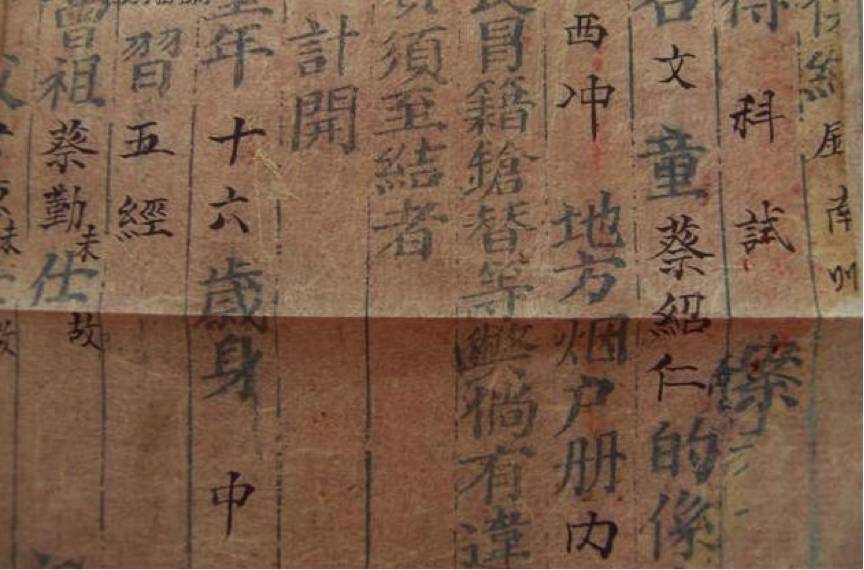 結 屋 南 則
科 試 察
文 童 蔡 紹 仁 的 係
西 冲 地 方 烟 户 册 内
冒 籍 鎗 替 等 弊 倘 有 違
須 至 結 者
計 開
年 十 六 歲 身 中
習 五 經
曾 祖 蔡 勤 未 仕 故